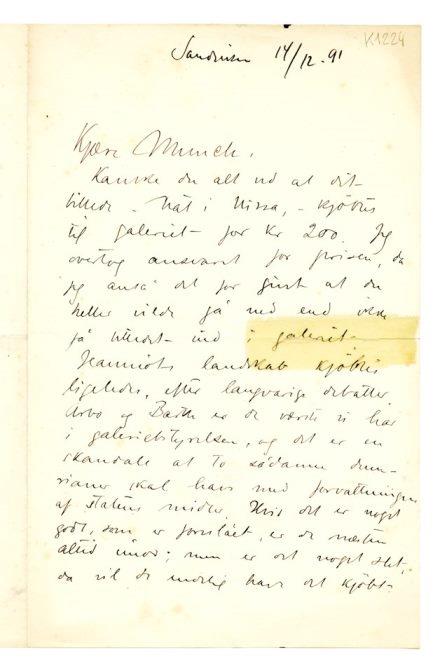 K1224
Sandviken 14/12 - 91
Kjære Munch.
Kanske du alt ved at dit
billede - Nat i Nissa, - kjöbtes
til galeriet - for Kr 200. Jeg
overtog ansvaret for prisen, da
jeg anså det for givet at du
heller vilde gå ned end ikke
få billedet ind i galeriet.
Jeanniots landskab kjöbtes
ligeledes, efter langvarige debatter.
Arbo og Barth er de værste vi har
i galeribestyrelsen, og det er en
skandale at to sådanne dum-
rianer skal have med forvaltningen
af statens midler. Hvis det er noget
godt, som er foreslået, er de næsten
altid imod; men er det noget slet,
da vil de endelig have det kjöbt-